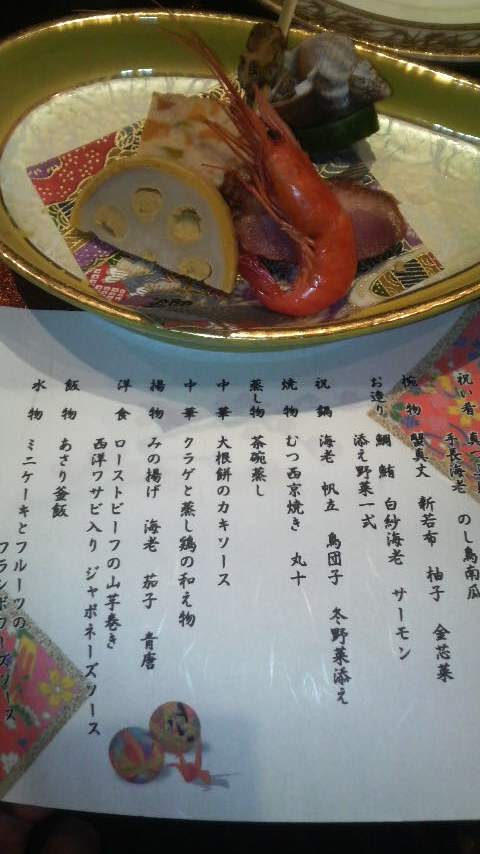 祝い肴 のし鳥南瓜
手長海老
椀物 蟹真丈 新若布 柚子 金芯菜
お造り 鯛 鮪 白紗海老 サーモン
添え野菜一式
祝鍋 海老 帆立 鳥団子 冬野菜添え
焼物 むつ西京焼き 丸十
蒸し物 茶碗蒸し
中華 大根餅のカキソース
中華 クラゲと蒸し鶏の和え物
揚物 みの揚げ 海老 茄子 青唐
洋食 ローストビーフの山芋巻き
西洋ワサビ入り ジャポネーズソース
飯物 あさり釜飯
水物 ミニケーキとフルーツの
フランボワーズソース